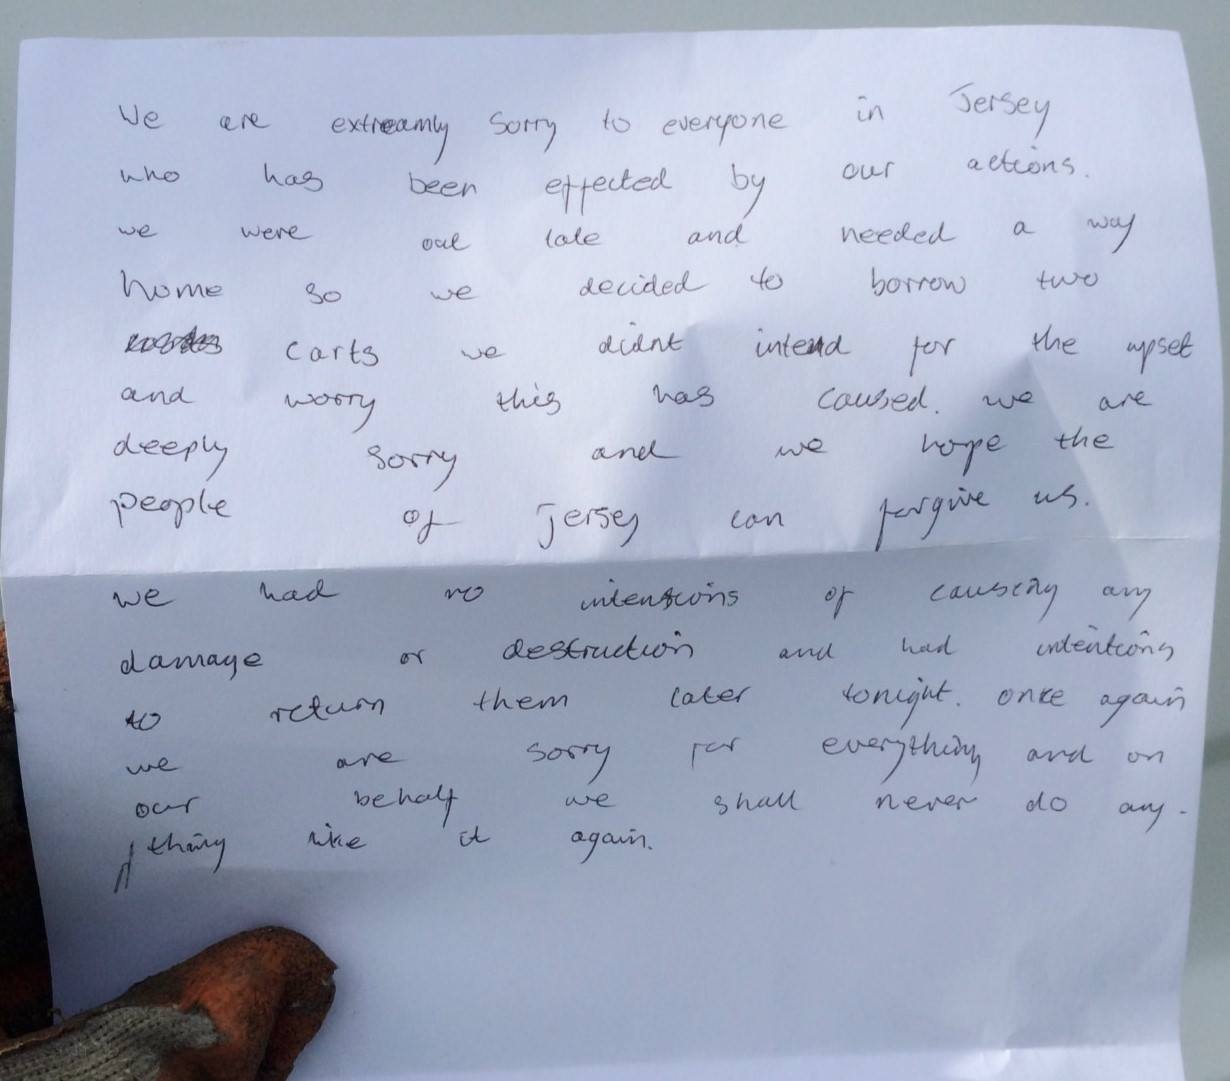 We are extreamly sorry to everyone in Jersey
who has been effected by our actions.
we were out late and needed a way
home so we decided to borrow two
carts we didnt intend for the upset
and worry this has caused. we are
deeply sorry and we hope the
people of jersey can forgive us.
we had no intensions of causing any
damage or destruction and had intentions
to return them later tonight. once again
we are sorry for everything and on
our behalf we shall never do any-
thing like it again.